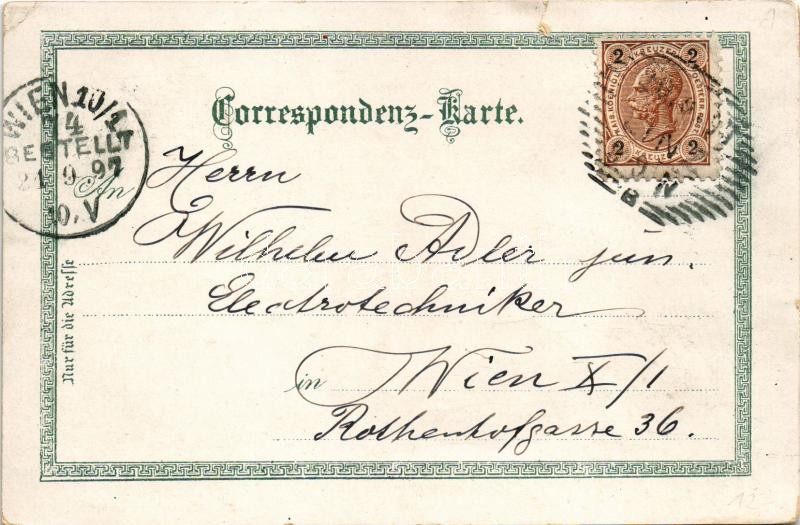 Correspondenz-Karte.
WIEN 10/1
4
BESTELLT
21.9.97
10.V
2 2
2 2
An
Herrn
Wilhelm Adler jun.
Electrotechniker
in Wien X/1
Rothenhofgasse 36.
Nur für die Adresse